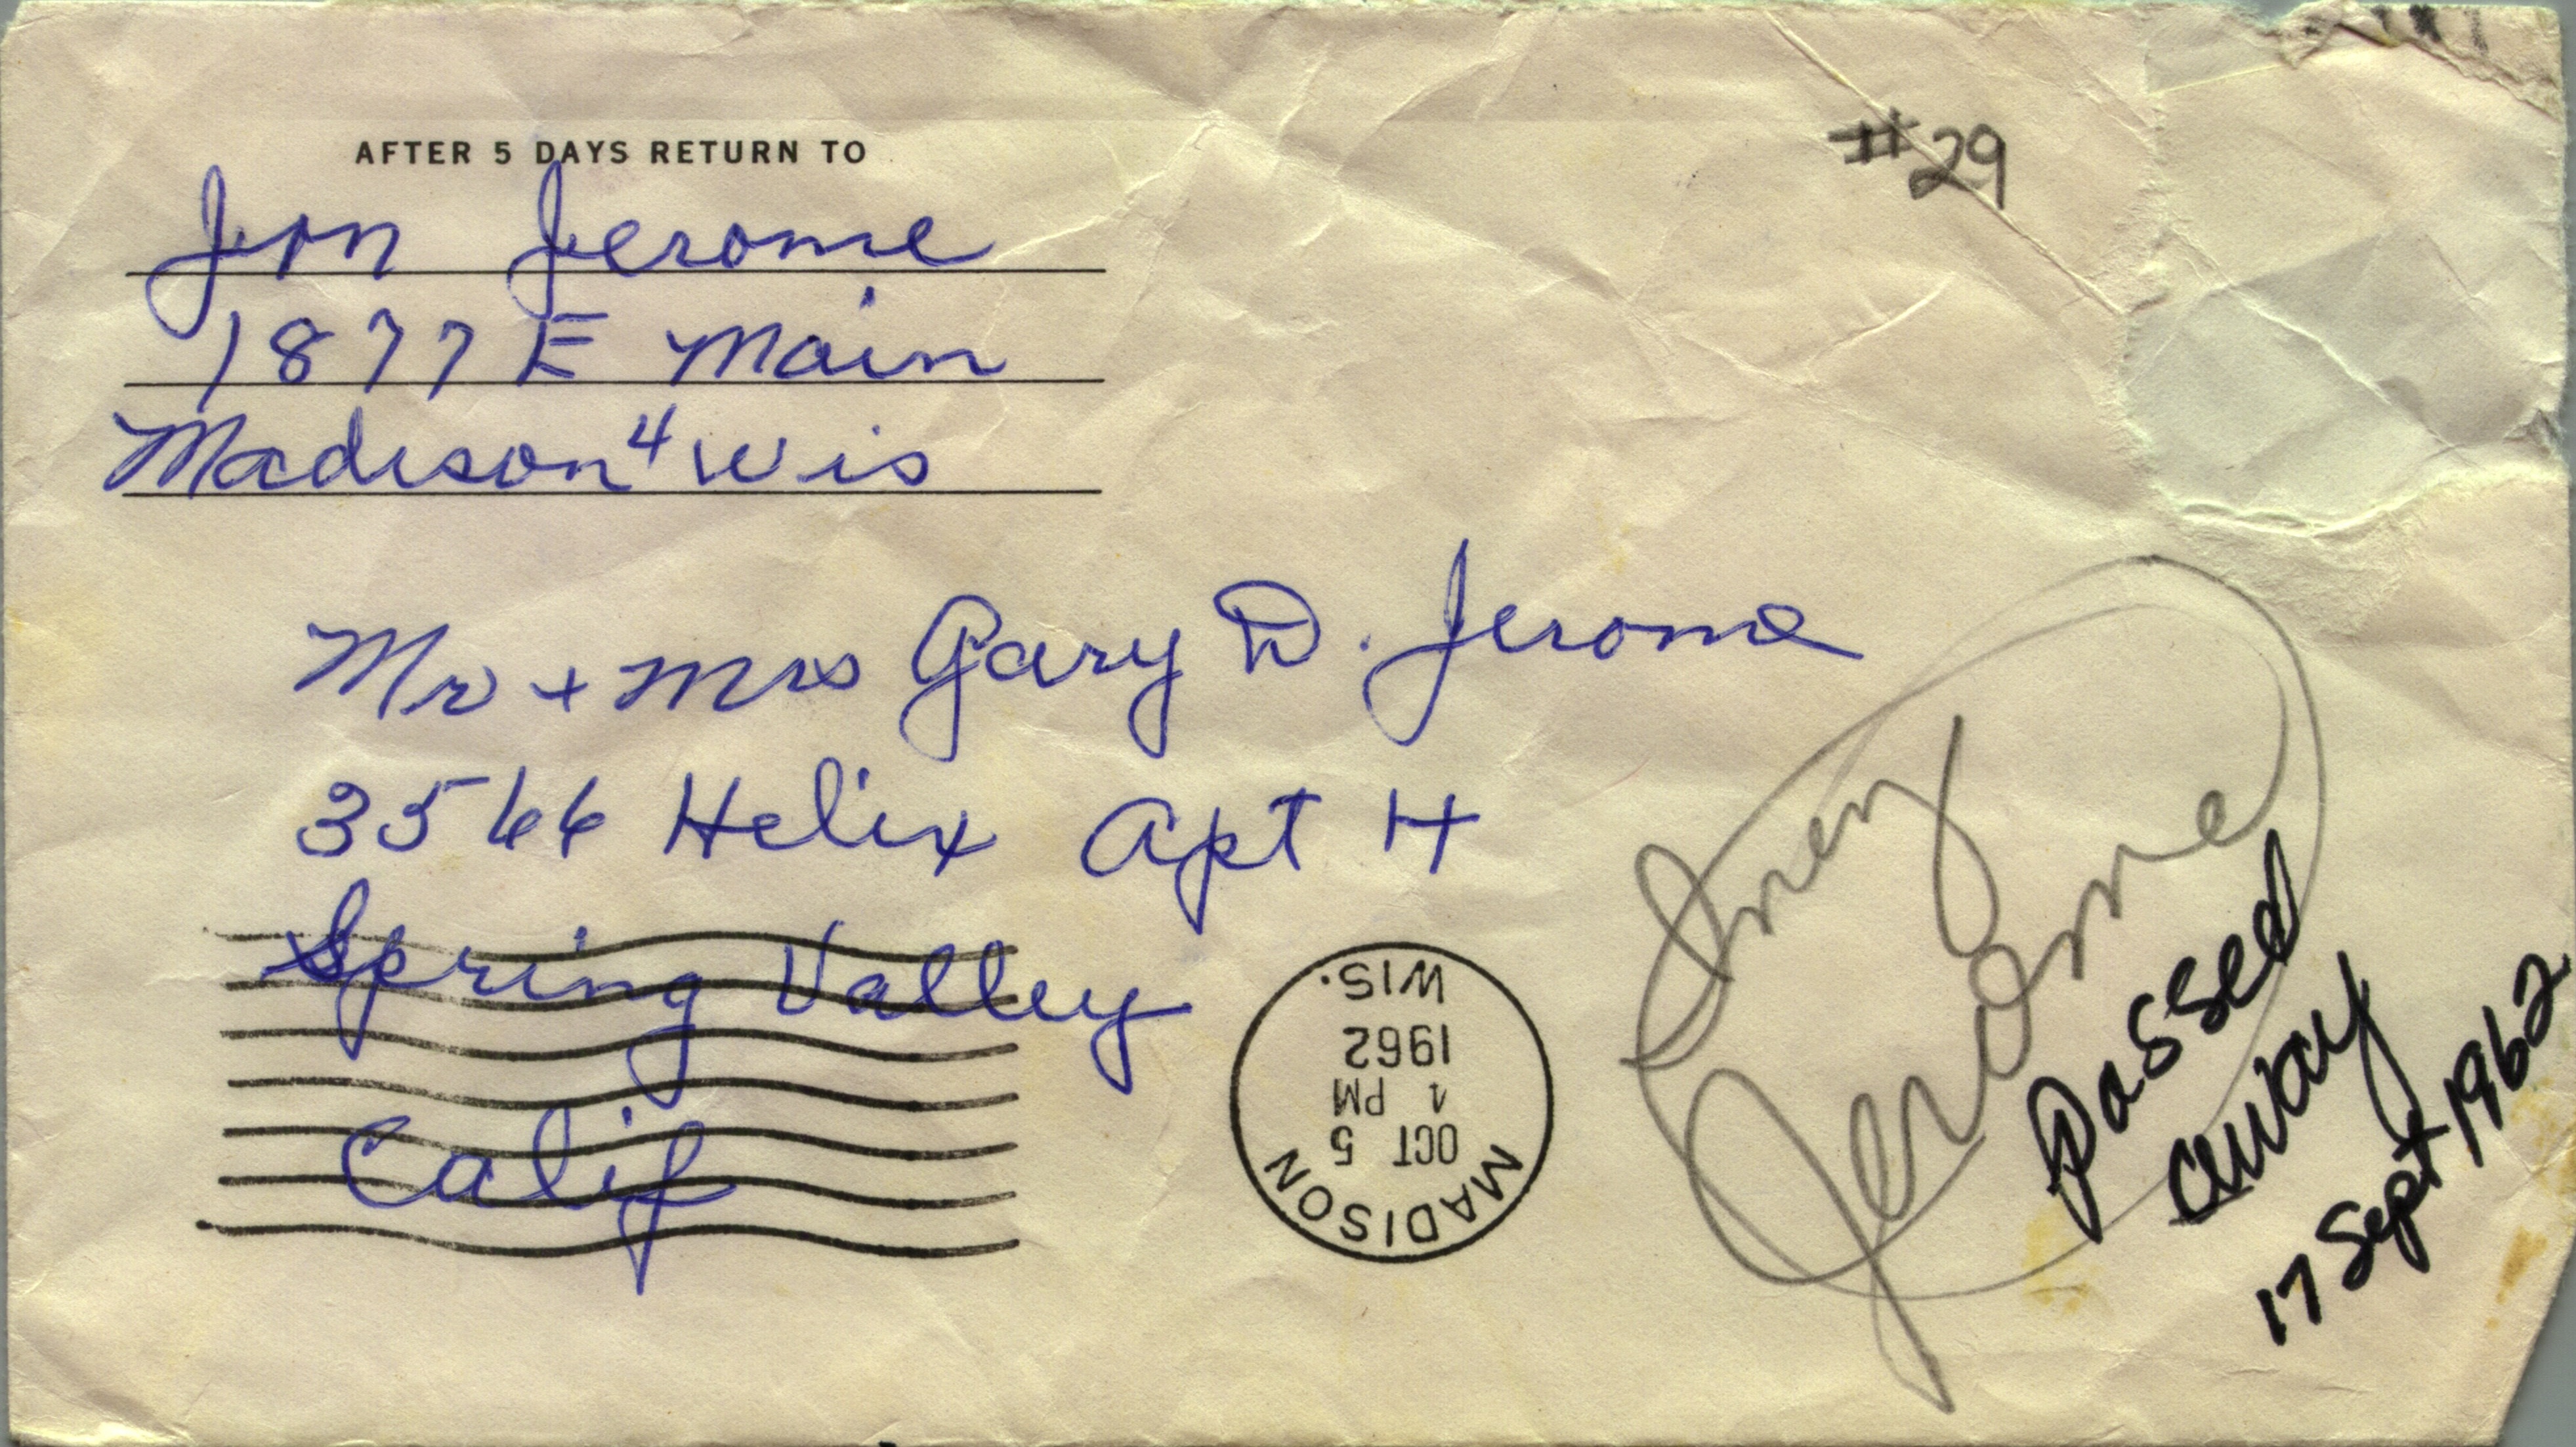 #29
AFTER 5 DAYS RETURN TO
Jon Jerome
1877 E Main
Madison 4 Wis
Mr + Mrs Gary D. Jerome
3566 Helix Apt H
Spring Valley
Calif
MADISON
OCT 5
1 PM
1962
WIS.
Inez
Jerome
Passed
away
17 Sept 1962